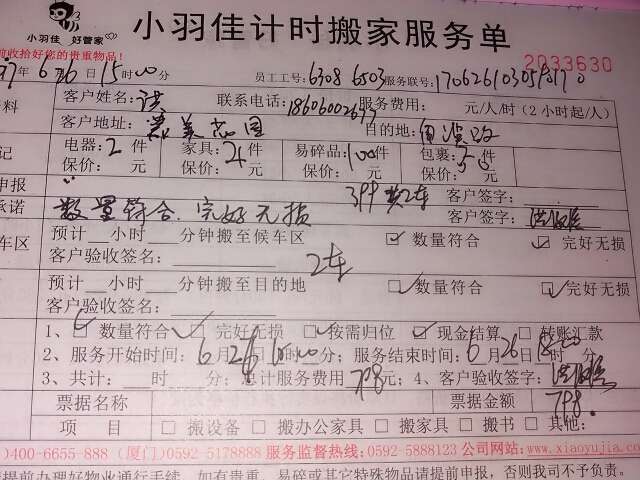 小羽佳计时搬家服务单
小羽佳 好管家
前收拾好您的贵重物品！
2033630
年6月26日15时00分 员工工号：6308 6503 服务联号：
料 客户姓名：洪 联系电话：18606002677 服务费用： 元/人/时（2小时起/人）
客户地址： 美花园 目的地：
记 电器：2件 家具：4件 易碎品：100件 包裹：50件
保价： 元 保价： 元 保价： 元 保价： 元
申报 399 2车 客户签字：
承诺 数量符合.完好无损 客户签字：
预计 小时 分钟搬至候车区 数量符合 完好无损
车区 客户验收签名：
2车
预计 小时 分钟搬至目的地 数量符合 完好无损
客户验收签名：
1、 数量符合 完好无损 按需归位 现金结算 转账汇款
2、服务开始时间：6月26日15时00分；服务结束时间：6月26日 时 分；
3、共计： 时 分；总计服务费用798元；4、客户验收签字：
票据名称 票据金额 798.
项 目 搬设备 搬办公家具 搬家具 搬书 其他：
)400-6655-888 (厦门)0592-5178888 服务监督热线：0592-5888123 公司网站：www.xiaoyujia.com
提前办理好物业通行手续，如有贵重、易碎或其它特殊物品请提前申报，否则我司不予负责。